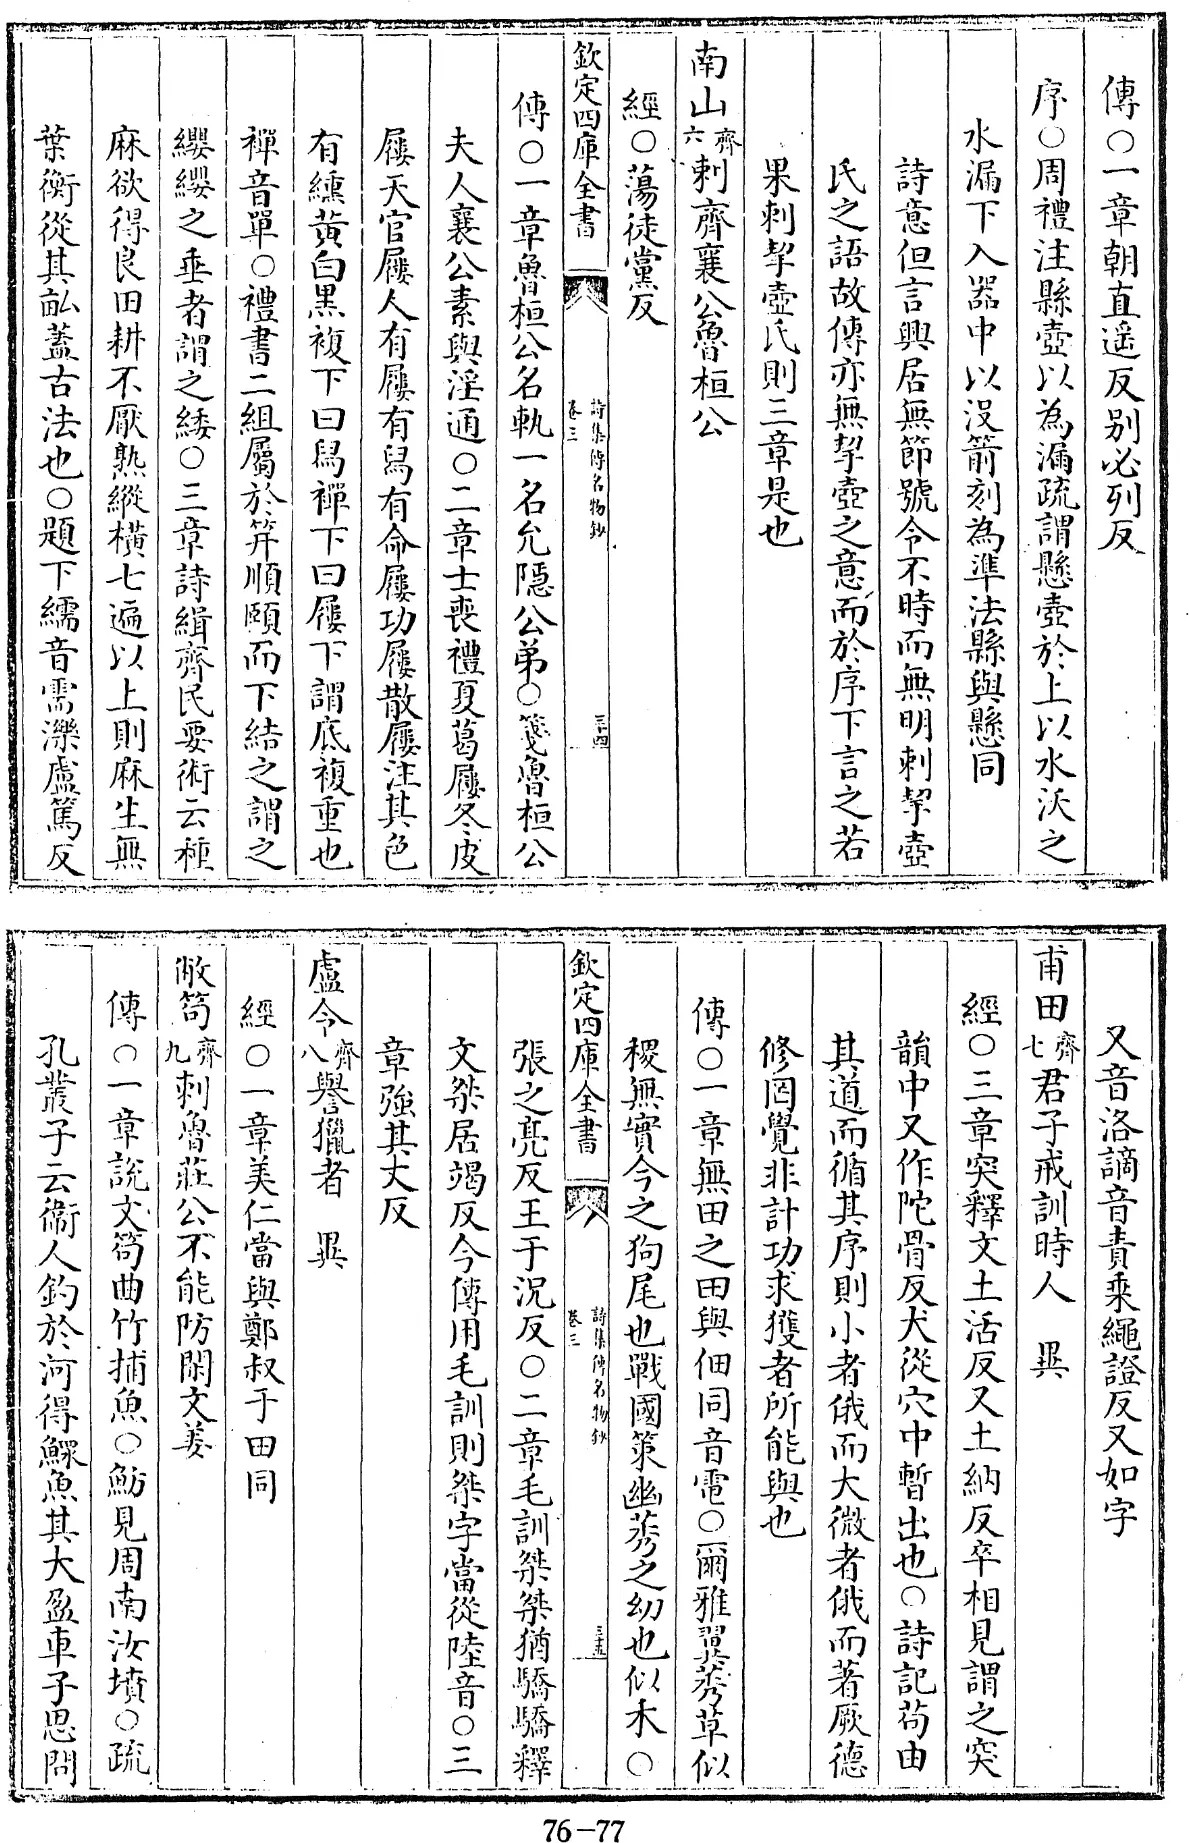 傳○一章朝直遥反别必列反
序○周禮注縣壺以為漏疏謂懸壺於上以水沃之
水漏下入器中以没箭刻為準法縣與懸同
詩意但言興居無節號令不時而無明刺挈壺
氏之語故傳亦無挈壺之意而於序下言之若
果刺挈壺氏則三章是也
南山齊六刺齊襄公魯桓公
經○蕩徒黨反
欽定四庫全書
詩集傳名物鈔
卷三
三十四
傳○一章魯桓公名軌一名允隱公弟○箋魯桓公
夫人襄公素與淫通○二章士喪禮夏葛屨冬皮
屨天官屨人有屨有舄有命屨功屨散屨注其色
有纁黄白黒複下曰舄禪下曰屨下謂底複重也
禪音單○禮書二組屬於笄順頤而下結之謂之
纓纓之垂者謂之緌○三章詩緝齊民要術云種
麻欲得良田耕不厭熟縱横七遍以上則麻生無
葉衡從其畝蓋古法也○題下繻音需濼盧篤反
又音洛謫音責乗繩證反又如字
甫田齊七君子戒訓時人　異
經○三章突釋文土活反又土納反卒相見謂之突
韻中又作陀骨反犬從穴中暫出也○詩記苟由
其道而循其序則小者俄而大微者俄而著厥德
修罔覺非計功求獲者所能與也
傳○一章無田之田與佃同音電○爾雅翼莠草似
稷無實今之狗尾也戰國策幽莠之幼也似禾○
欽定四庫全書
詩集傳名物鈔
卷三
三十五
張之亮反王于況反○二章毛訓桀桀猶驕驕釋
文桀居竭反今傳用毛訓則桀字當從陸音○三
章強其大反
盧令齊八譽獵者　異
經○一章美仁當與鄭叔于田同
敝笱齊九刺魯莊公不能防閑文姜
傳○一章説文笱曲竹捕魚○魴見周南汝墳○疏
孔叢子云衞人釣於河得鰥魚其大盈車子思問
76-77